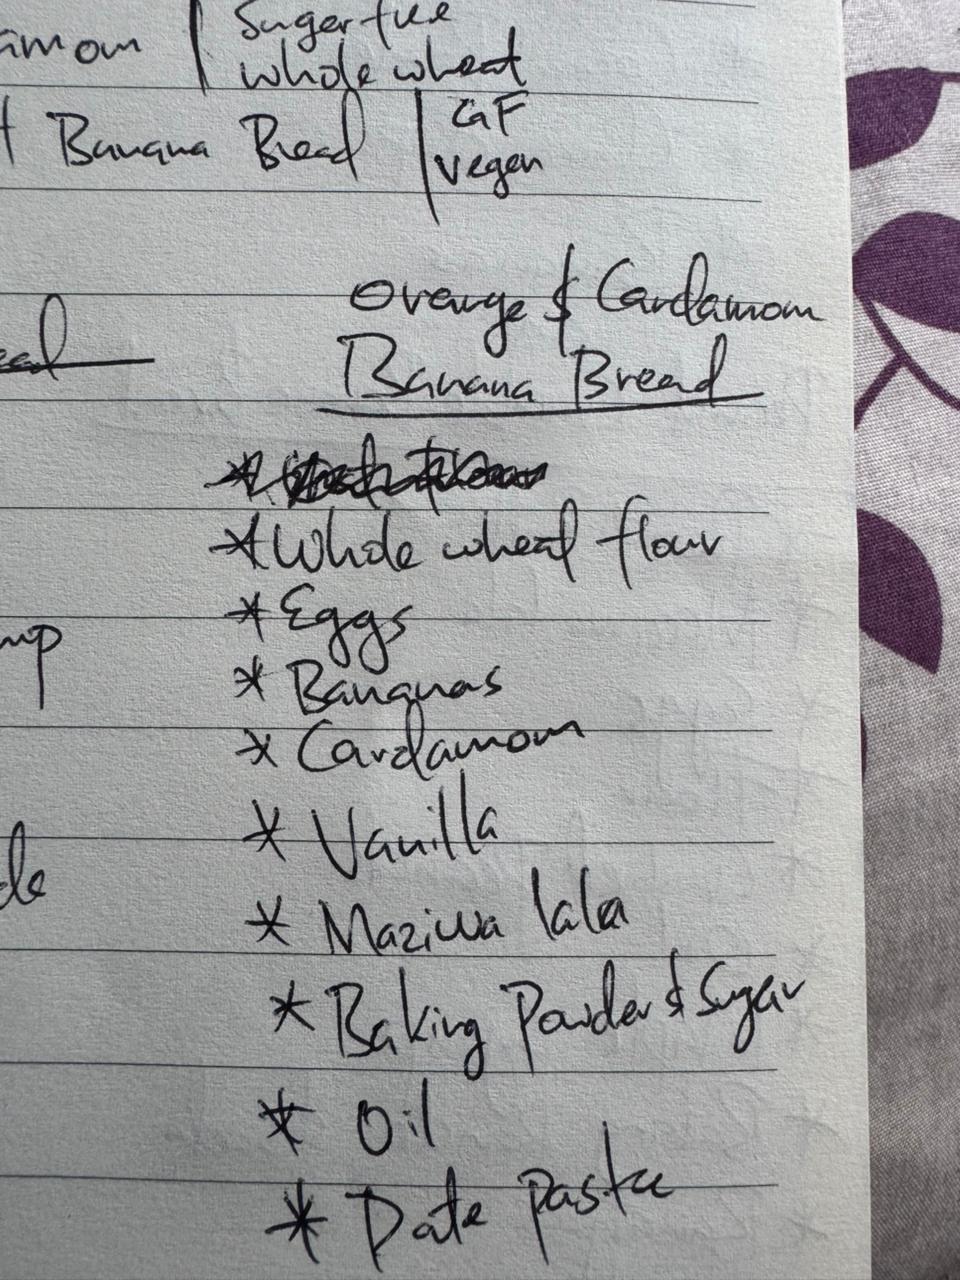 amom | Sugar free
whole wheat
Banana Bread | GF
vegen
Orange & Cardamom
Banana Bread
* Whole wheat flour
* Eggs
* Bananas
* Cardamom
* Vanilla
* Maziwa lala
* Baking Powder & Sugar
* Oil
* Date paste